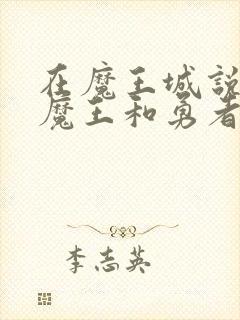 在魔王城說
魔王和勇者
李志英